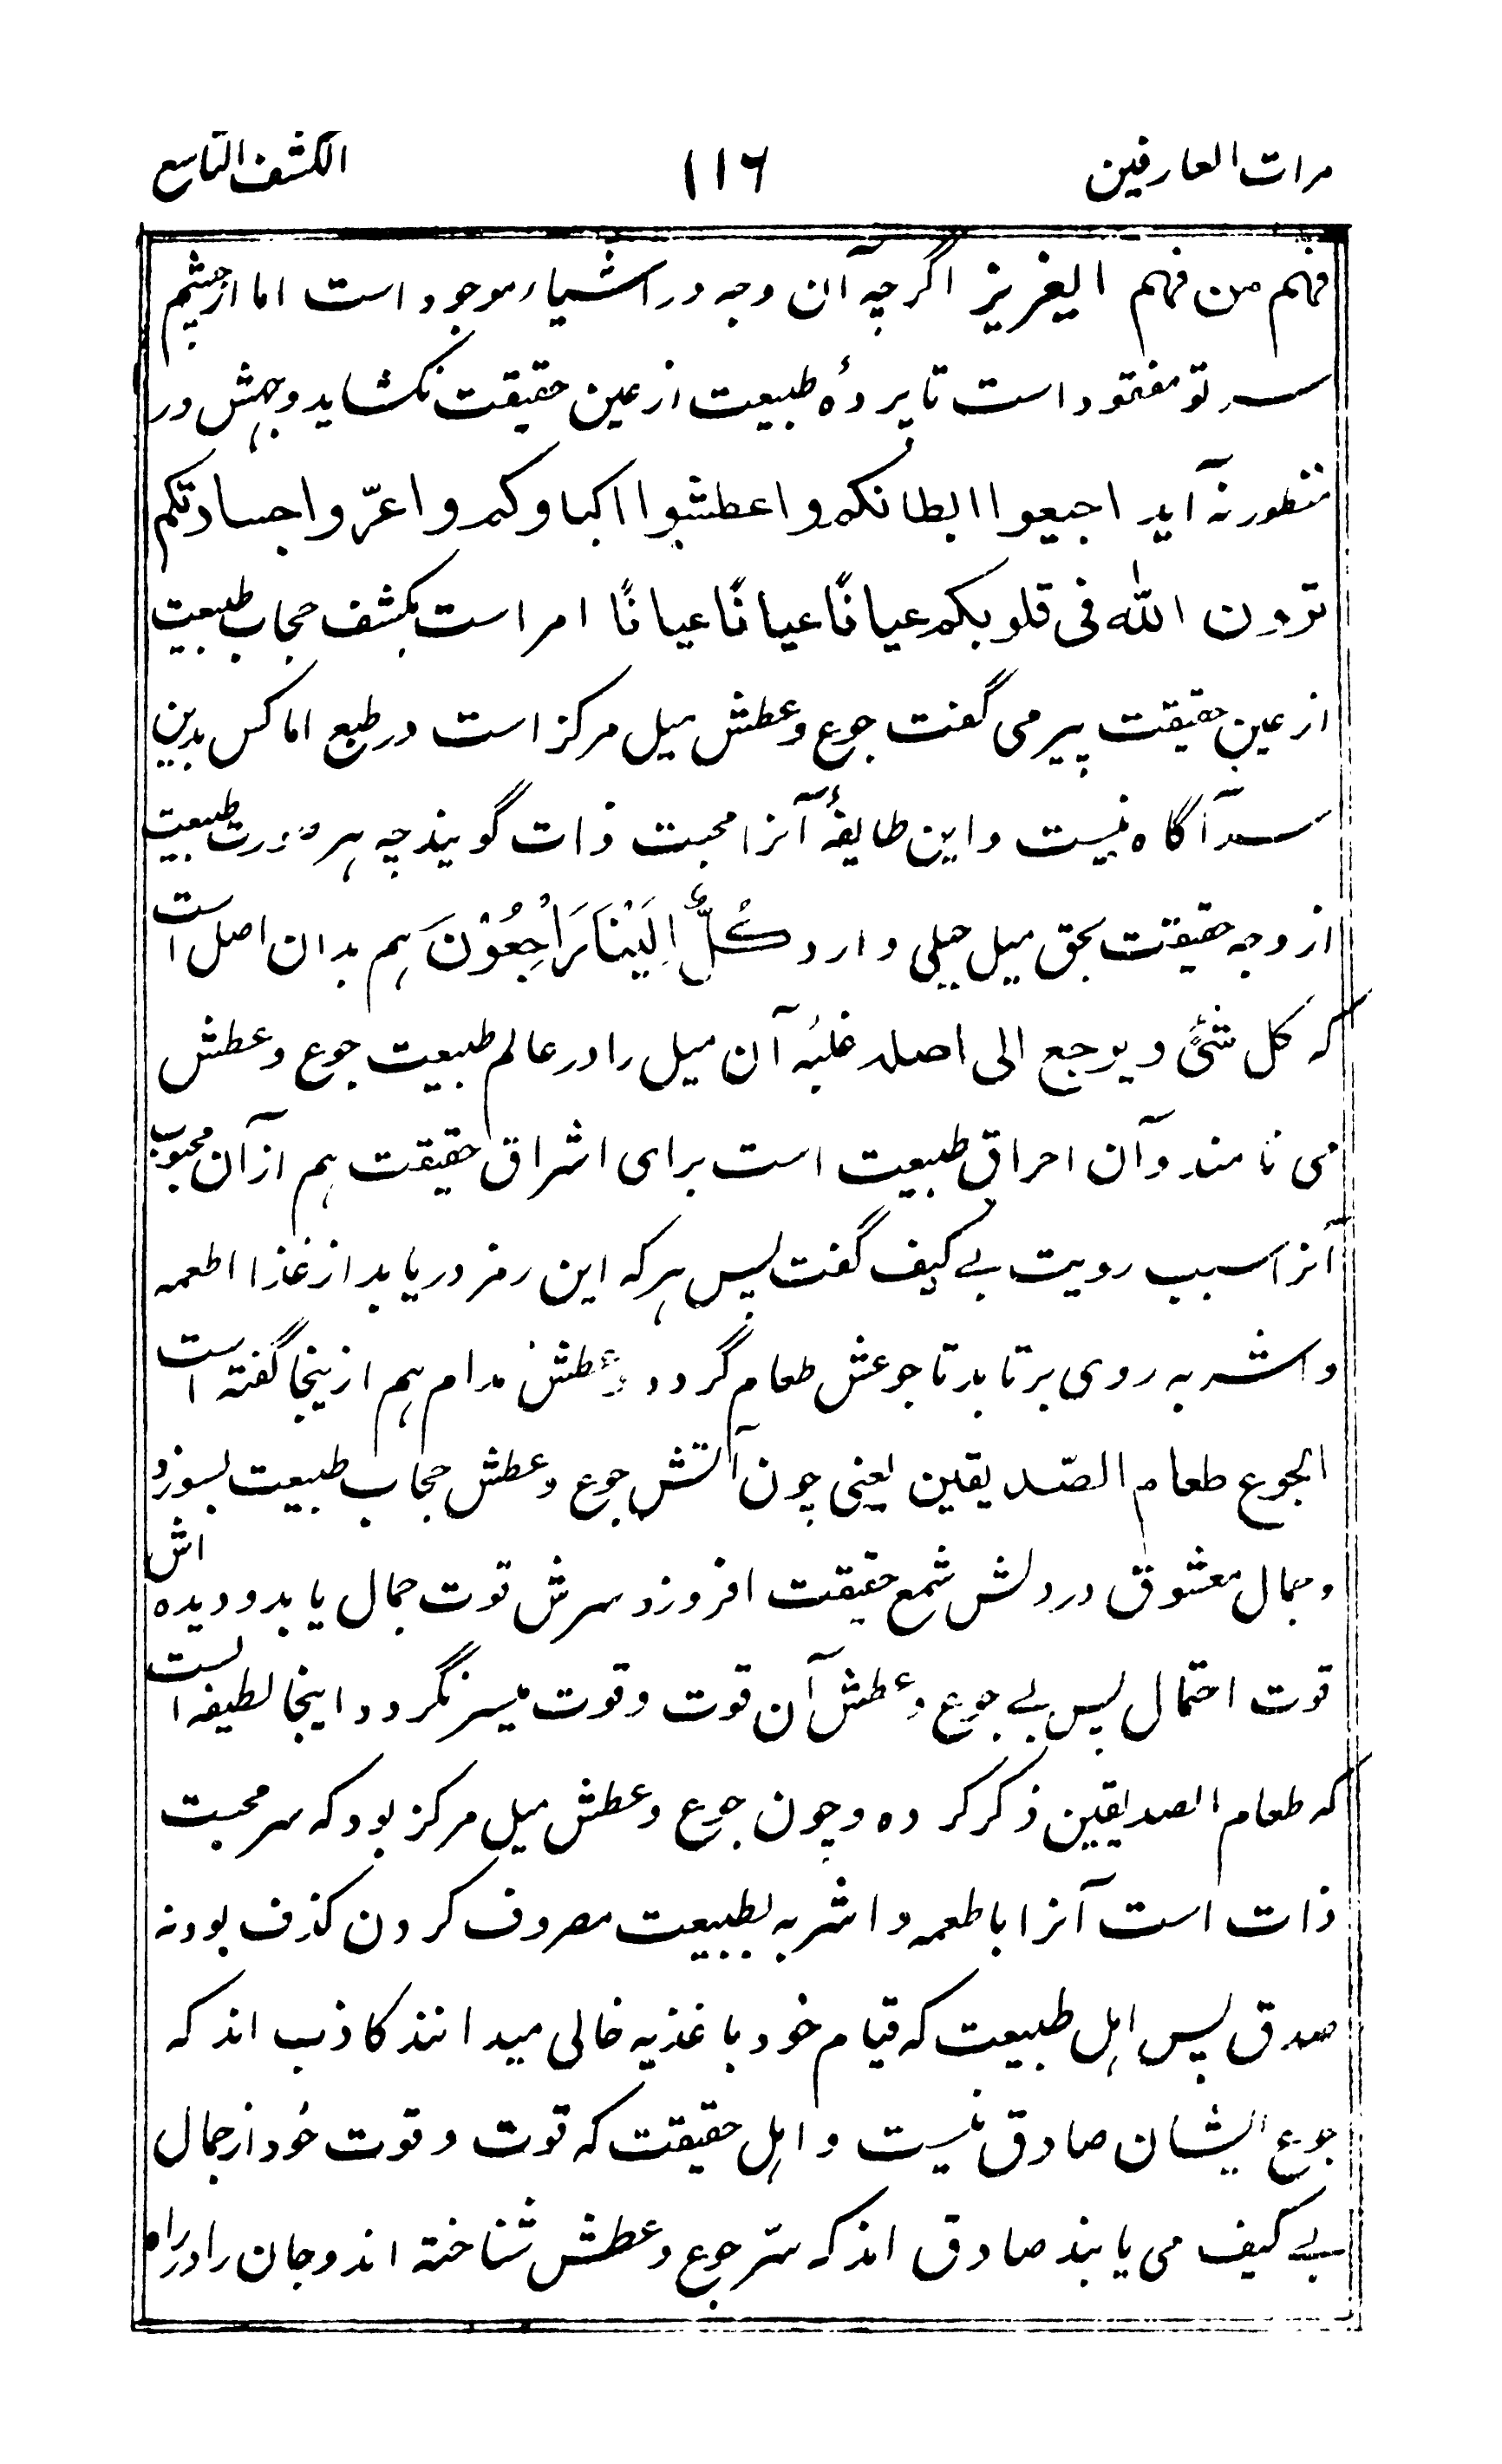 مرات العارفین ۱۱۶ الکشف التاسع
فهم من فهم ایعزیز اگرچه آن وجه در اشیاء موجود است اما از چشم
سر تو مفقود است تا پردۀ طبیعت از عین حقیقت نکشاید وجهش در
منظور نه آید اجیعوا ابطانکم واعطشوا اکبادکم واعرّوا جسادتکم
ترون الله فی قلوبکم عیانًا عیانًا عیانًا امر است بکشف حجاب طبیعت
از عین حقیقت پیر می گفت جوع و عطش میل مرکز است در طبع اما کس بدین
سر آگاه نیست و این طایفۀ آنرا محبت ذات گویند چه هر صورت طبیعت
از وجه حقیقت بحق میل جبلی دارد كُلٌّ اِلَيْنَا رَاجِعُوْنَ هم بدان اصل است
که کل شئ ویرجع الی اصله غلبۀ آن میل را در عالم طبیعت جوع و عطش
می نامند و آن احراق طبیعت است برای اشراق حقیقت هم از آن محبوب
آنرا سبب رویت بے کیف گفت پس هر که این رمز دریابد از غذا اطعمه
و اشربه روی برتابد تا جوعش طعام گردد و عطش مدام هم ازینجا گفته است
الجوع طعام الصّدیقین یعنی چون آتش جوع و عطش حجاب طبیعت بسوزد
و جمال معشوق در دلش شمع حقیقت افروزد سرش قوت جمال یابد و دیده اش
قوت احتمال پس بے جوع و عطش آن قوت و قوت میسر نگردد اینجا لطیفه است
که طعام الصدیقین ذکر کرده و چون جوع و عطش میل مرکز بود که سر محبت
ذات است آنرا باطعمه و اشربه بطبیعت مصروف کردن کذف بود نه
صدق پس اهل طبیعت که قیام خود باغذیه خالی میدانند کاذب اند که
جوع ایشان صادق نیست و اهل حقیقت که قوت و قوت خود از جمال
بے کیف می یابند صادق اند که سرّ جوع و عطش شناخته اند و جان را در راه